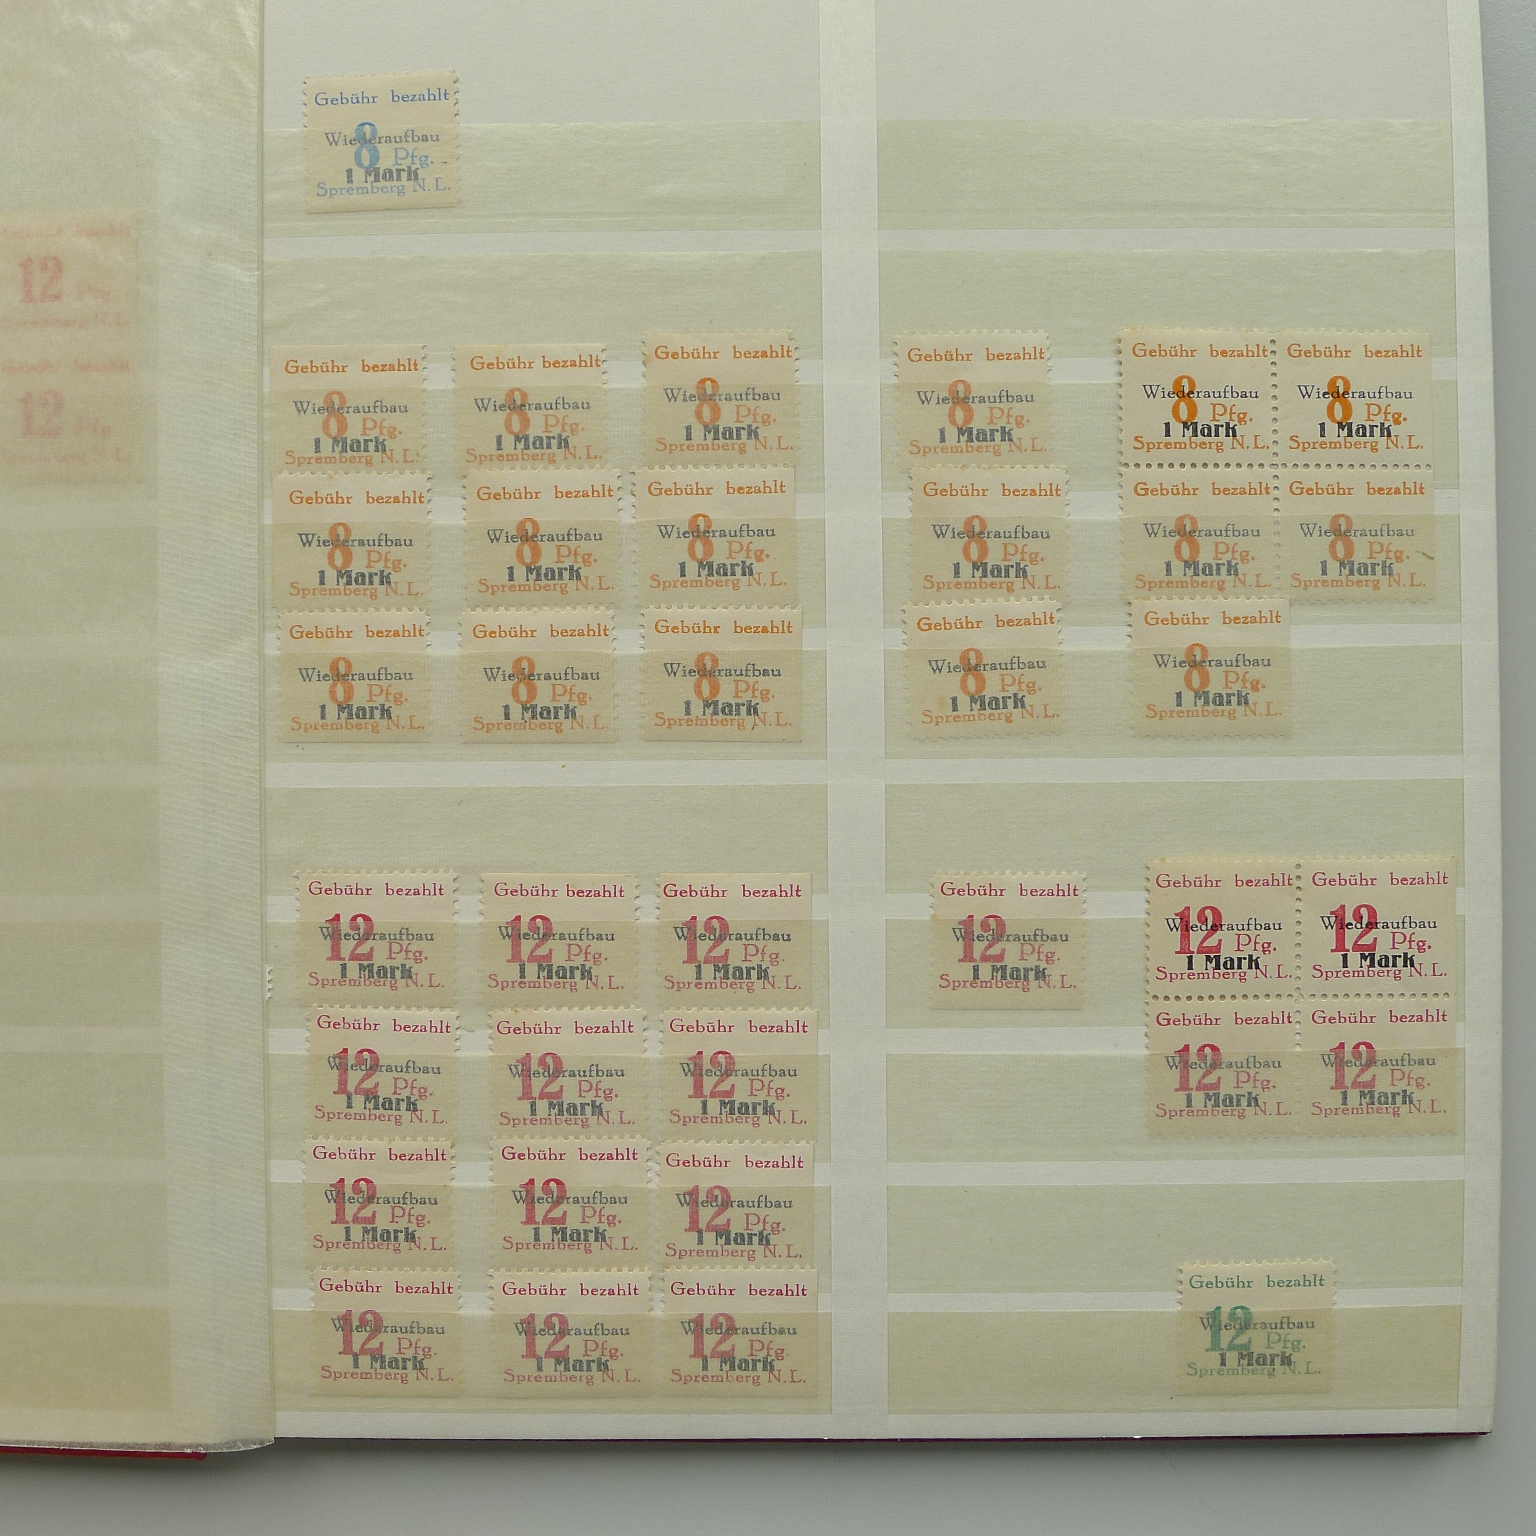 12
12
Gebühr bezahlt
Wiederaufbau
8 Pfg.
1 Mark
Spremberg N.L.
Gebühr bezahlt
Wiederaufbau
8 Pfg.
1 Mark
Spremberg N.L.
Gebühr bezahlt
Wiederaufbau
8 Pfg.
1 Mark
Spremberg N.L.
Gebühr bezahlt
Wiederaufbau
8 Pfg.
1 Mark
Spremberg N.L.
Gebühr bezahlt
Wiederaufbau
8 Pfg.
1 Mark
Spremberg N.L.
Gebühr bezahlt
Wiederaufbau
8 Pfg.
1 Mark
Spremberg N.L.
Gebühr bezahlt
Wiederaufbau
8 Pfg.
1 Mark
Spremberg N.L.
Gebühr bezahlt
Wiederaufbau
8 Pfg.
1 Mark
Spremberg N.L.
Gebühr bezahlt
Wiederaufbau
8 Pfg.
1 Mark
Spremberg N.L.
Gebühr bezahlt
Wiederaufbau
8 Pfg.
1 Mark
Spremberg N.L.
Gebühr bezahlt
Wiederaufbau
8 Pfg.
1 Mark
Spremberg N.L.
Gebühr bezahlt
Wiederaufbau
8 Pfg.
1 Mark
Spremberg N.L.
Gebühr bezahlt
Wiederaufbau
8 Pfg.
1 Mark
Spremberg N.L.
Gebühr bezahlt
Wiederaufbau
8 Pfg.
1 Mark
Spremberg N.L.
Gebühr bezahlt
Wiederaufbau
8 Pfg.
1 Mark
Spremberg N.L.
Gebühr bezahlt
Wiederaufbau
8 Pfg.
1 Mark
Spremberg N.L.
Gebühr bezahlt
Wiederaufbau
8 Pfg.
1 Mark
Spremberg N.L.
Gebühr bezahlt
Wiederaufbau
8 Pfg.
1 Mark
Spremberg N.L.
Gebühr bezahlt
Wiederaufbau
12 Pfg.
1 Mark
Spremberg N.L.
Gebühr bezahlt
Wiederaufbau
12 Pfg.
1 Mark
Spremberg N.L.
Gebühr bezahlt
Wiederaufbau
12 Pfg.
1 Mark
Spremberg N.L.
Gebühr bezahlt
Wiederaufbau
12 Pfg.
1 Mark
Spremberg N.L.
Gebühr bezahlt
Wiederaufbau
12 Pfg.
1 Mark
Spremberg N.L.
Gebühr bezahlt
Wiederaufbau
12 Pfg.
1 Mark
Spremberg N.L.
Gebühr bezahlt
Wiederaufbau
12 Pfg.
1 Mark
Spremberg N.L.
Gebühr bezahlt
Wiederaufbau
12 Pfg.
1 Mark
Spremberg N.L.
Gebühr bezahlt
Wiederaufbau
12 Pfg.
1 Mark
Spremberg N.L.
Gebühr bezahlt
Wiederaufbau
12 Pfg.
1 Mark
Spremberg N.L.
Gebühr bezahlt
Wiederaufbau
12 Pfg.
1 Mark
Spremberg N.L.
Gebühr bezahlt
Wiederaufbau
12 Pfg.
1 Mark
Spremberg N.L.
Gebühr bezahlt
Wiederaufbau
12 Pfg.
1 Mark
Spremberg N.L.
Gebühr bezahlt
Wiederaufbau
12 Pfg.
1 Mark
Spremberg N.L.
Gebühr bezahlt
Wiederaufbau
12 Pfg.
1 Mark
Spremberg N.L.
Gebühr bezahlt
Wiederaufbau
12 Pfg.
1 Mark
Spremberg N.L.
Gebühr bezahlt
Wiederaufbau
12 Pfg.
1 Mark
Spremberg N.L.
Gebühr bezahlt
Wiederaufbau
12 Pfg.
1 Mark
Spremberg N.L.